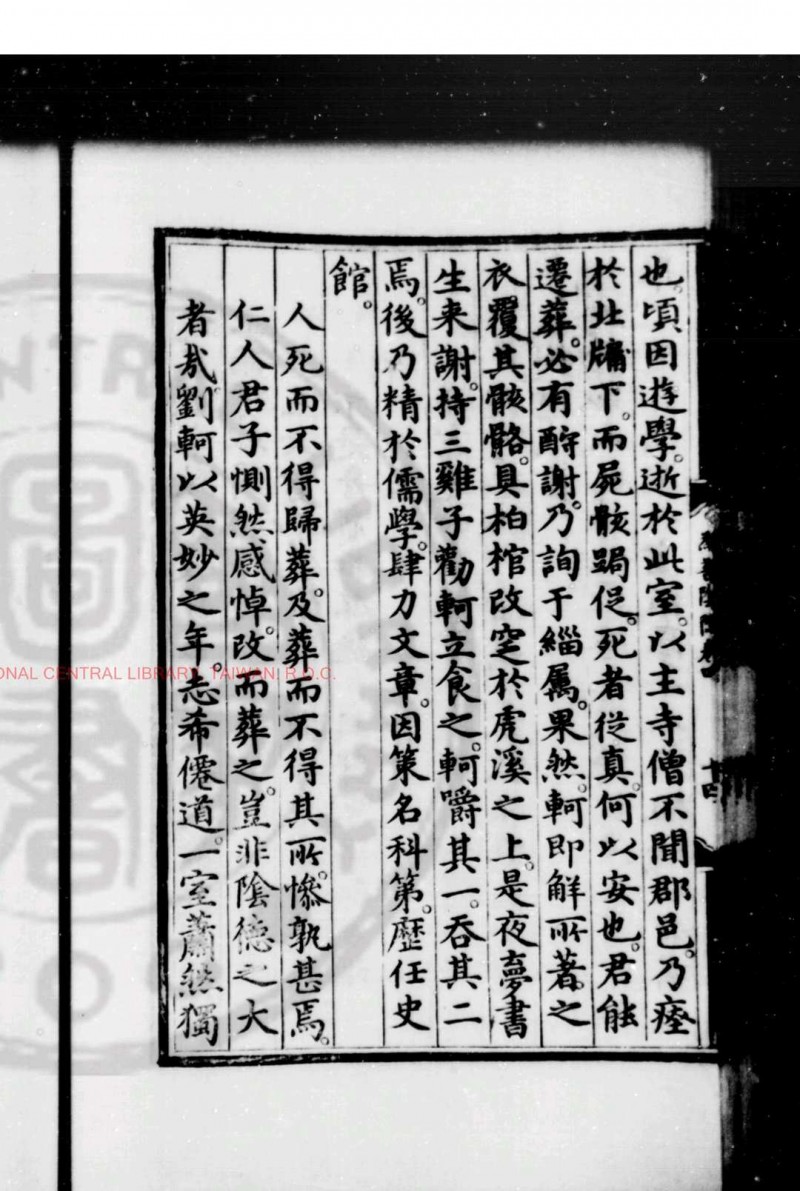 也。頃因遊學。逝於此室。以主寺僧不聞郡邑。乃瘞
於北牖下。而屍骸跼促。死者從真。何以安也。君能
遷葬。必有酧謝。乃詢于緇屬。果然。軻即解所著之
衣。覆其骸骼。具柏棺改窆於虎溪之上。是夜夢書
生来謝。持三雞子勸軻立食之。軻嚼其一。吞其二
焉。後乃精於儒學。肆力文章。因策名科第。歷任史
館。
人死而不得歸葬。及葬而不得其所。慘孰甚焉。
仁人君子惻然感悼。改而葬之。豈非陰德之大
者㢤。劉軻以英妙之年。志希僊道。一室蕭然。獨
十四
NATIONAL CENTRAL LIBRARY, TAIWAN, R.O.C.